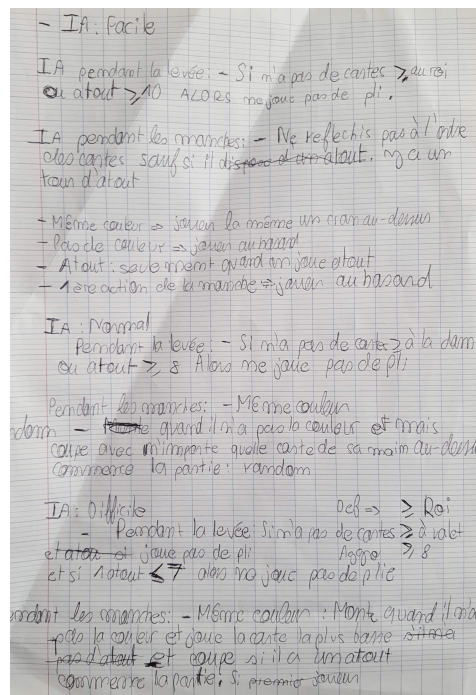 - IA : Facile
IA pendant la levée : - Si n'a pas de cartes ≥ au roi
ou atout ≥ 10 ALORS ne joue pas de pli.
IA pendant les manches : - Ne reflechis pas à l'ordre
des cartes sauf si il atout. y a un
tour d'atout
- Même couleur => jouer la même un cran au-dessus
- Pas de couleur => jouer au hasard
- Atout : seulement quand on joue atout
- 1ère action de la manche => jouer au hasard
IA : Normal
Pendant la levée : - Si n'a pas de cartes ≥ à la dam
ou atout ≥ 8 Alors ne joue pas de pli
Pendant les manches : - Même couleur
ndom - quand il n'a pas la couleur et mais
coupe avec n'importe quelle carte de sa main au-dessu
commence la partie : random
IA : Difficile Def => ≥ Roi
- Pendant la levée : Si n'a pas de cartes ≥ à valet
et joue pas de pli Aggro ≥ 8
et si 1 atout ≤ 7 alors no joue pas de plie
endant les manches : - Même couleur : Monte quand il n'a
pas la couleur et joue la carte la plus basse
et coupe si il a un atout
commenre la partie : Si premier joueur